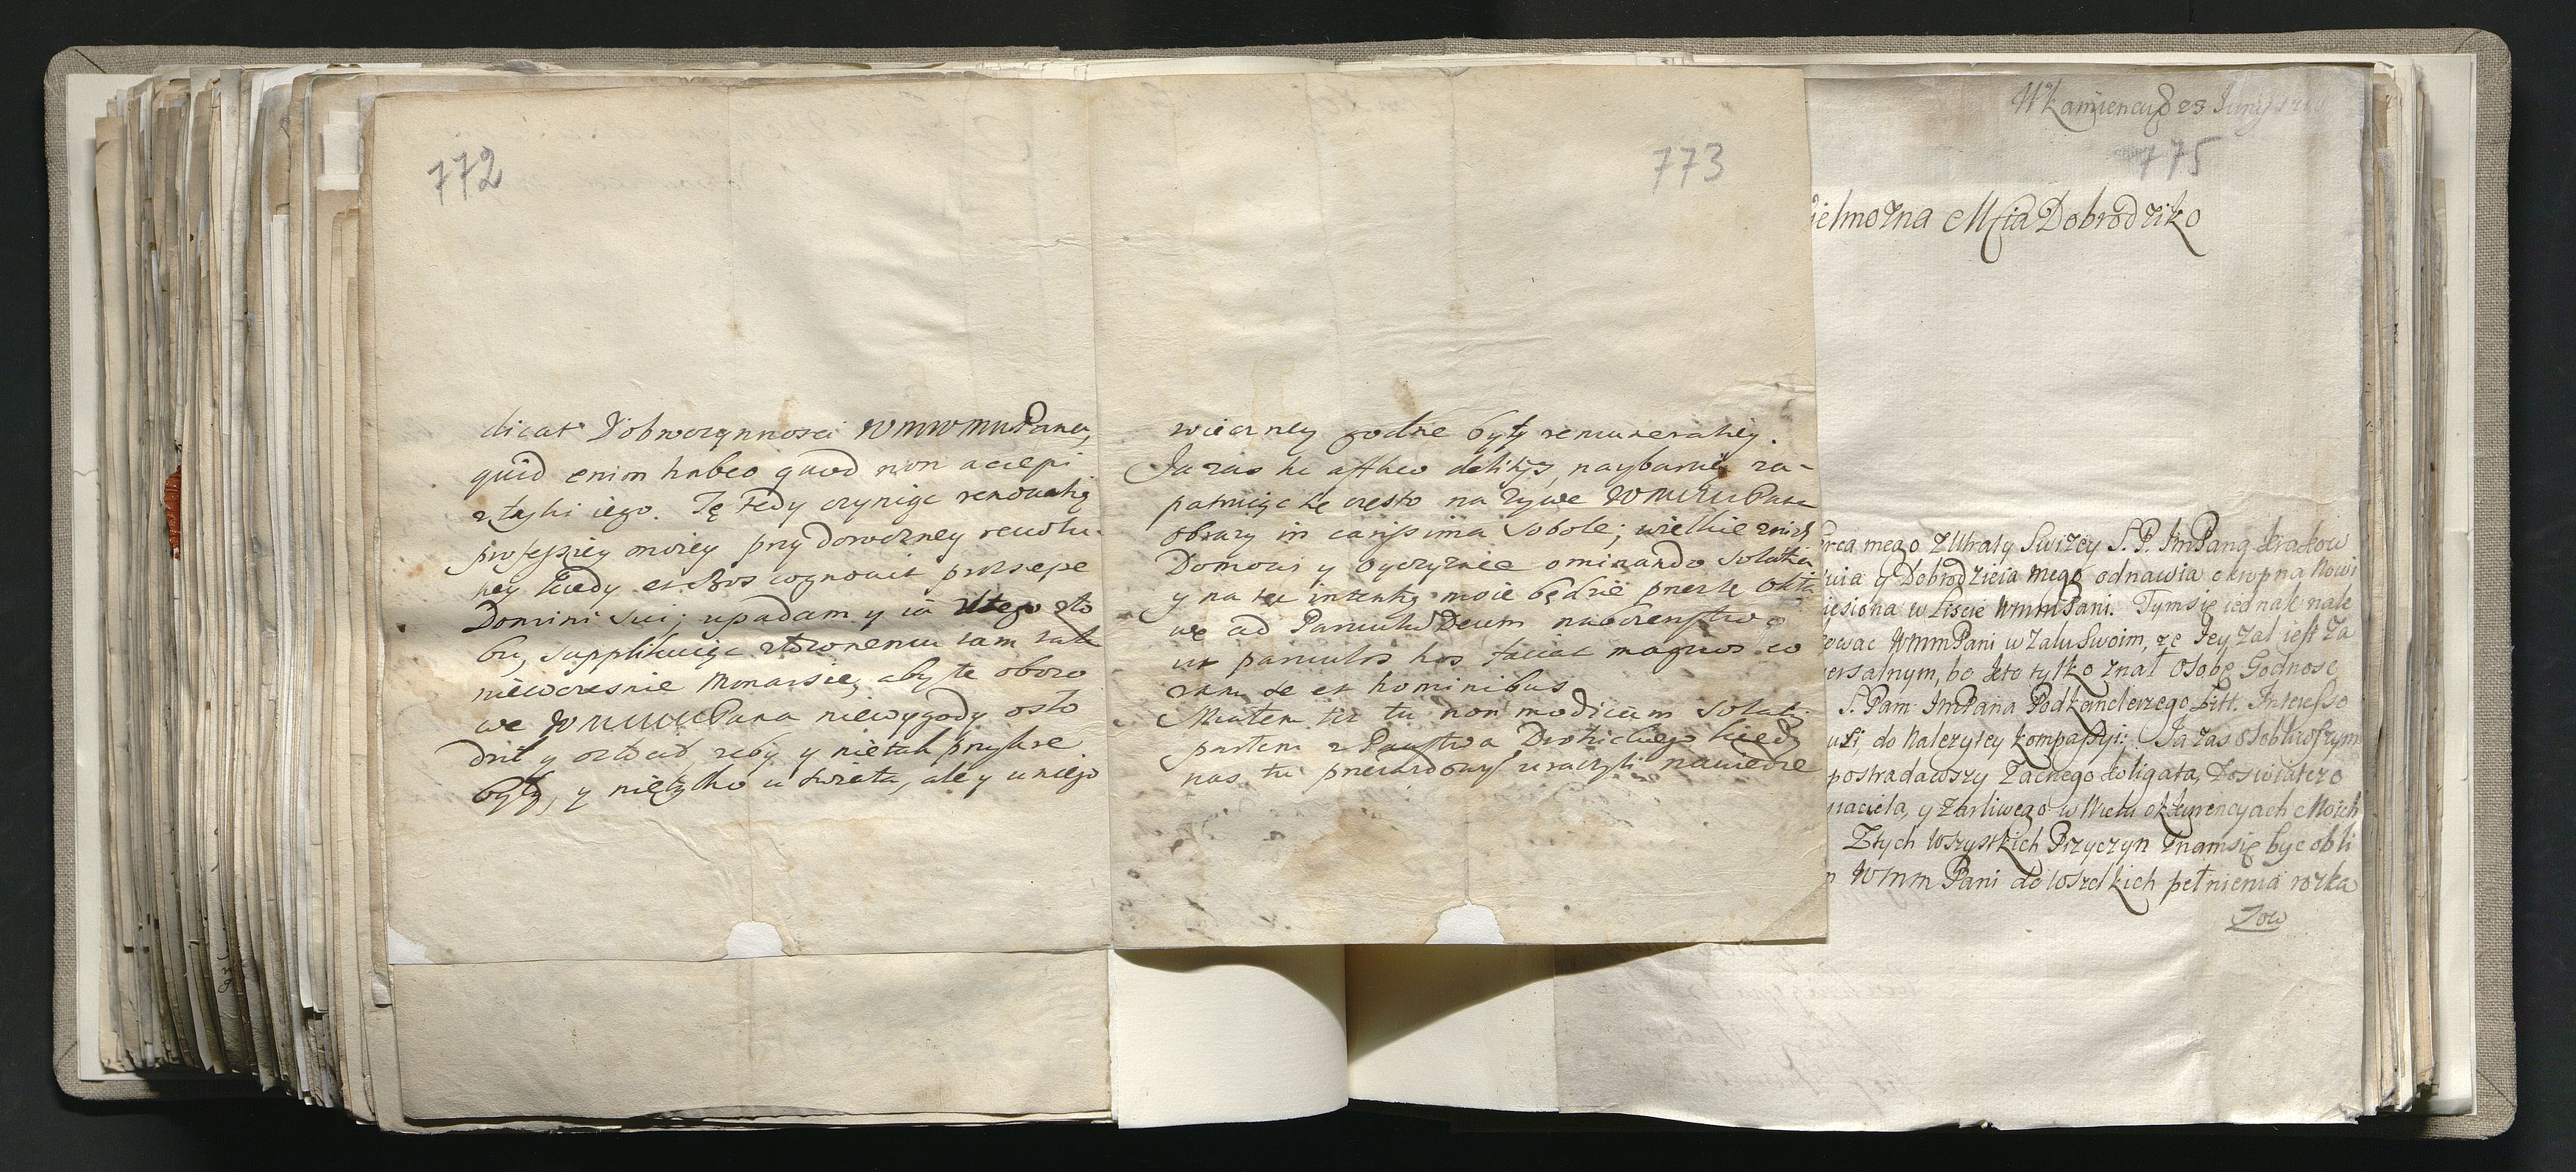 772
dicat Dobroczynnosci WMWMMPana,
quid enim habeo quod non accepi
z łaski iego. Tę tedy czyniąc renovatią
professiey moiey przy doroczney revolu-
tiey kiedy et Bos cognovit prṡepe
Domini sui; upadam y ia u tego żło
bu, supplikuiąc złożonemu tam tak
niewczesnie Monarsie, aby te obozo
we WMMMPana niewygody osło
dził y ozłocił, zeby y nie tak przykre
były, y nie tylko u swiata, ale y u niego
773
wieczney godne były remuneratiey.
Ja zas hc affluo delitijs, naybarziey za-
patruiąc się często na żywe WMMMPana
obrazy in carissima Sobole; wielkie z nich
Domowi y Oyczyznie ominando solatia
y na tę intentią moie będzie przeszłe Okta
we ad Parvulu Deum nabożenstwo
ut parvulos hos faciat magnos co
ram se et hominibus
Miałem też tu non modicam solatij
partem z Państwa kiedy
nas tu uraczyli nawiedze
W Kamiencu d 23 Junij
775
ielmożna Mcia Dobrodziko
erca mego z Utraty Swiżey S. P. JmPana Krakow
kuia y Dobrodzieia mego odnawia okropna Nowi
iesiona w Liscie WmmPani. Tym się iednak nale
owac WmmPani w Zalu Swoim, że Jey Zal iest Za
ersalnym, bo kto tylko znał Osobę Godnosc
S. Pam: JmPana Podkanclerzego Litt. Interesso
uzi, do Nalezytey kompassyi; Ja zas osobliwszym
postradawszy Zacnego koligata, Doswiadczo
yiaciela, y Zarliwego w Wielu okkurencyach Moich
Z tych Wszystkich Przyczyn Znam się byc obli
m WmmPani do Wszelkich pełnienia rozka
Zow